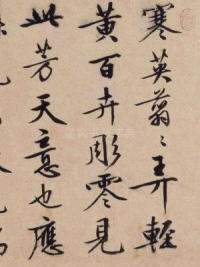 寒英翦〻弄輕
黃百卉彫零見
此芳天意也應